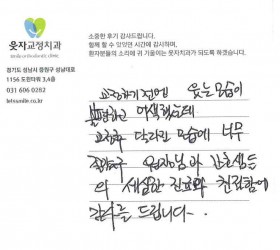 웃자교정치과
smile orthodontic clinic
경기도 성남시 중원구 성남대로
1156 도원타워 3,4층
031 606 0282
letsmile.co.kr
소중한 후기 감사드립니다.
함께 할 수 있었던 시간에 감사하며,
환자분들의 소리에 귀 기울이는 웃자치과가 되도록 하겠습니다.
교정하기전에 웃는모습이
어색했는데
교정후 달라진 모습에 너무
원장님과 간호샘들
의 세심한 진료와 친절함에
감사를 드립니다-